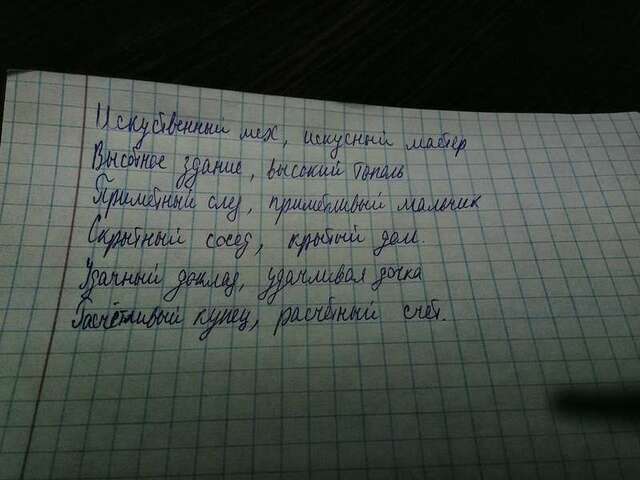 Искуственный мех, искусный мастер
Высотное здание, высокий тополь
Приметный след, приметливый мальчик
Скрытный сосед, крытый дом.
Удачный доклад, удачливая дочка
Расчётливый купец, расчётный счёт.